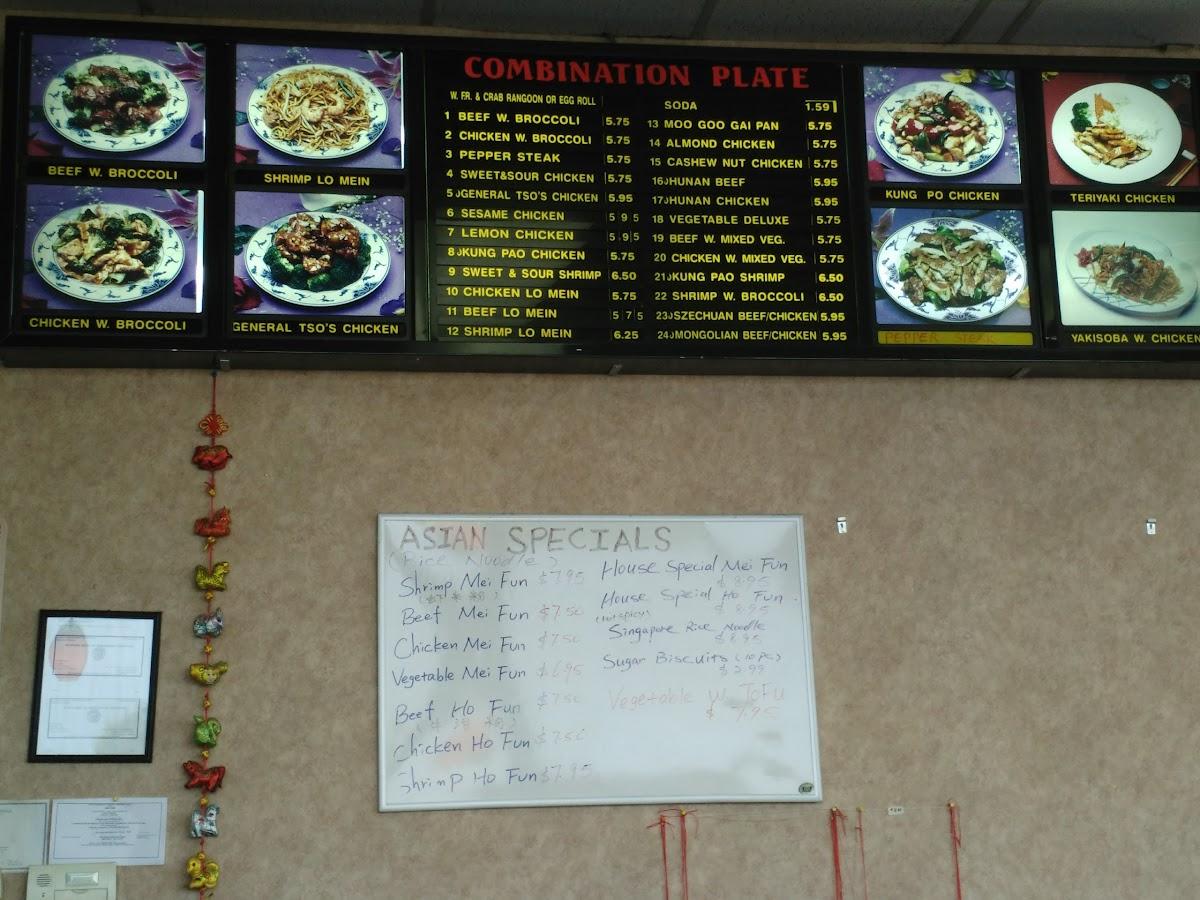 BEEF W. BROCCOLI
SHRIMP LO MEIN
CHICKEN W. BROCCOLI
GENERAL TSO'S CHICKEN
COMBINATION PLATE
W. FR. & CRAB RANGOON OR EGG ROLL
1 BEEF W. BROCCOLI 5.75
2 CHICKEN W. BROCCOLI 5.75
3 PEPPER STEAK 5.75
4 SWEET&SOUR CHICKEN 5.75
5 GENERAL TSO'S CHICKEN 5.95
6 SESAME CHICKEN 5 9 5
7 LEMON CHICKEN 5.9 5
8 KUNG PAO CHICKEN 5.75
9 SWEET & SOUR SHRIMP 6.50
10 CHICKEN LO MEIN 5.75
11 BEEF LO MEIN 5 7 5
12 SHRIMP LO MEIN 6.25
SODA 1.59
13 MOO GOO GAI PAN 5.75
14 ALMOND CHICKEN 5.75
15 CASHEW NUT CHICKEN 5.75
16 HUNAN BEEF 5.95
17 HUNAN CHICKEN 5.95
18 VEGETABLE DELUXE 5.75
19 BEEF W. MIXED VEG. 5.75
20 CHICKEN W. MIXED VEG. 5.75
21 KUNG PAO SHRIMP 6.50
22 SHRIMP W. BROCCOLI 6.50
23 SZECHUAN BEEF/CHICKEN 5.95
24 MONGOLIAN BEEF/CHICKEN 5.95
KUNG PO CHICKEN
TERIYAKI CHICKEN
PEPPER STEAK
YAKISOBA W. CHICKEN
ASIAN SPECIALS
(Rice Noodle)
Shrimp Mei Fun $7.95
Beef Mei Fun $7.50
Chicken Mei Fun $7.50
Vegetable Mei Fun $6.95
Beef Ho Fun $7.50
Chicken Ho Fun $7.50
Shrimp Ho Fun $7.95
House Special Mei Fun
$8.95
House Special Ho Fun
$8.95
(Hot spicy)
Singapore Rice Noodle
$8.95
Sugar Biscuits (10 PC)
$2.99
Vegetable W. ToFu
$ 7.95